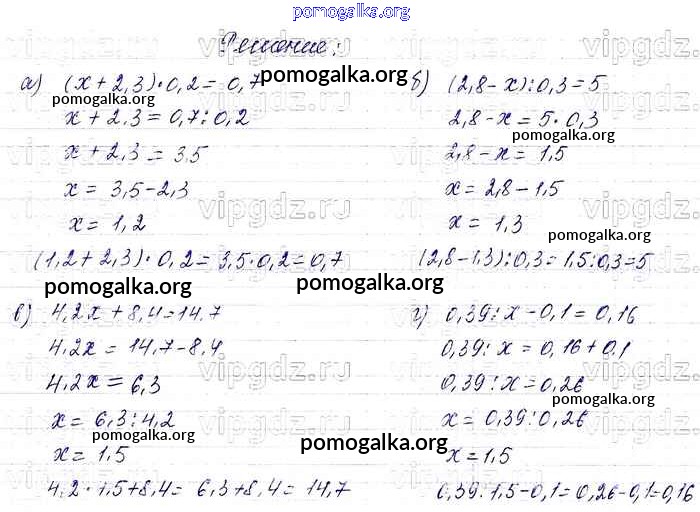 pomogalka.org
Решение:
а) (x+2,3)·0,2=0,7
x+2,3=0,7:0,2
x+2,3=3,5
x=3,5-2,3
x=1,2
(1,2+2,3)·0,2=3,5·0,2=0,7
б) (2,8-x):0,3=5
2,8-x=5·0,3
2,8-x=1,5
x=2,8-1,5
x=1,3
(2,8-1,3):0,3=1,5:0,3=5
в) 4,2x+8,4=14,7
4,2x=14,7-8,4
4,2x=6,3
x=6,3:4,2
x=1,5
4,2·1,5+8,4=6,3+8,4=14,7
г) 0,39:x-0,1=0,16
0,39:x=0,16+0,1
0,39:x=0,26
x=0,39:0,26
x=1,5
0,39:1,5-0,1=0,26-0,1=0,16
pomogalka.org
pomogalka.org
pomogalka.org
pomogalka.org
pomogalka.org
pomogalka.org
pomogalka.org
pomogalka.org
pomogalka.org
vipgdz.ru
vipgdz.ru
vipgdz.ru
vipgdz.ru
vipgdz.ru
vipgdz.ru